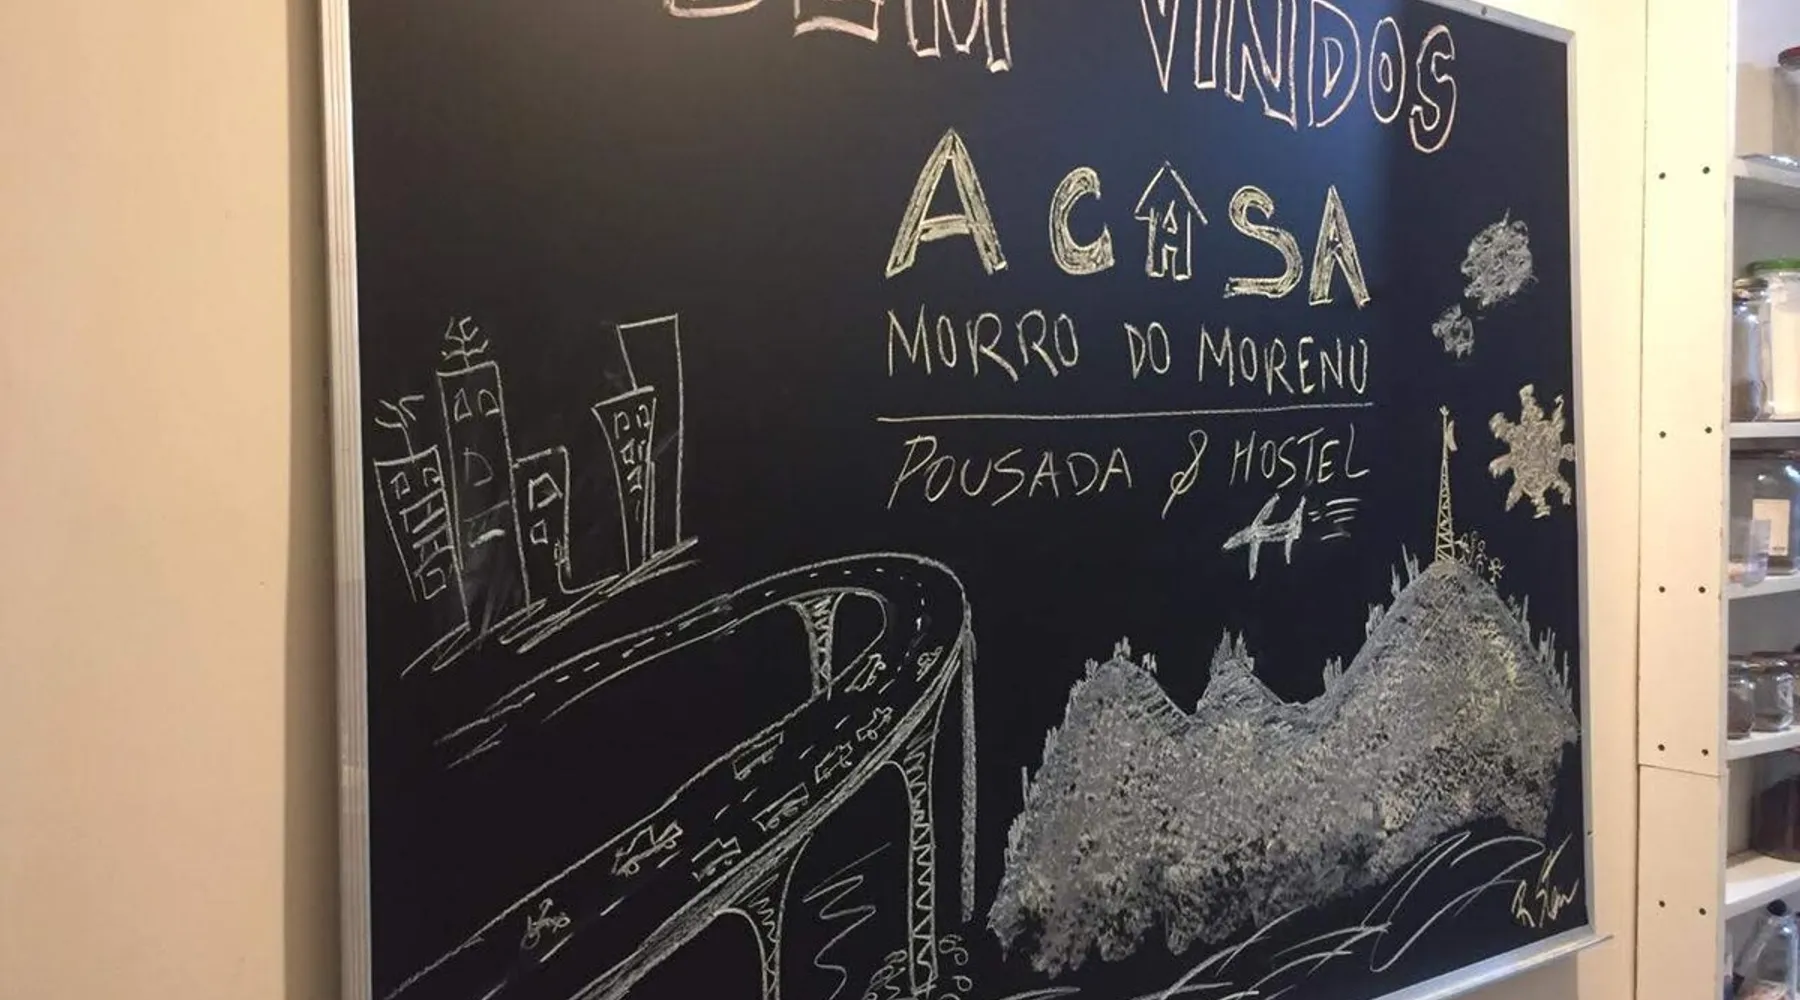 BEM VINDOS
A CASA
MORRO DO MORENO
POUSADA & HOSTEL